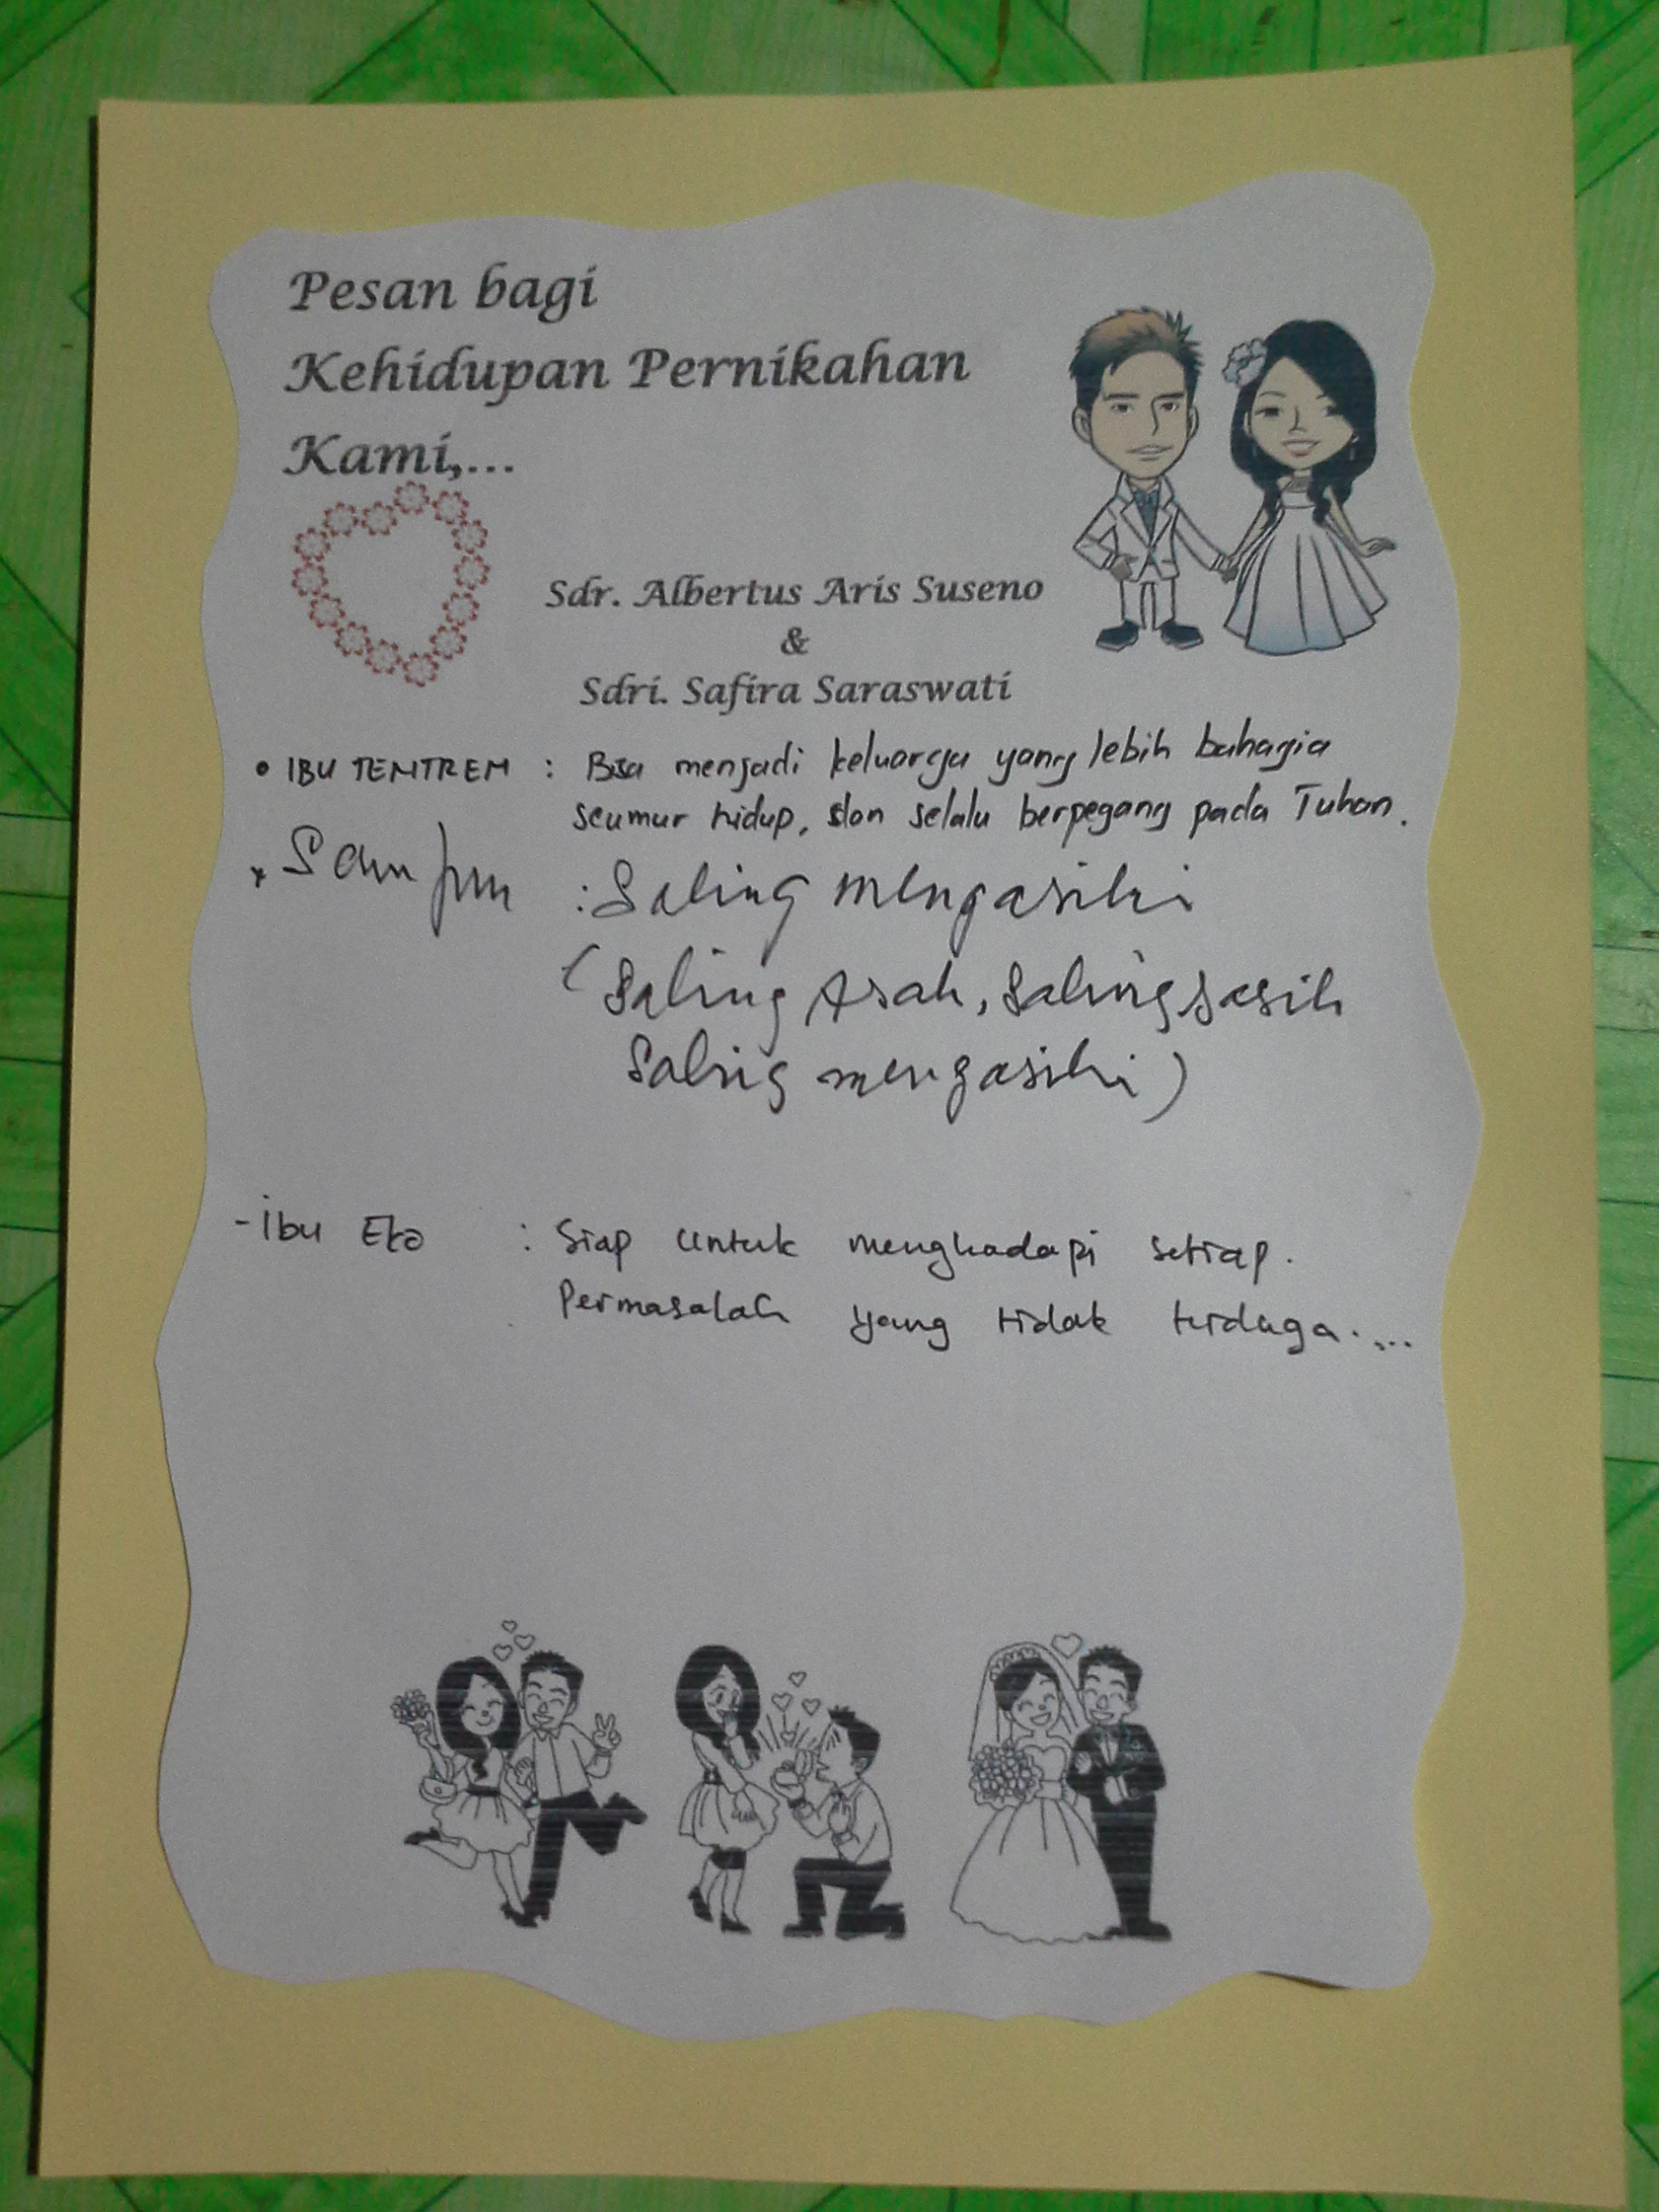 Pesan bagi
Kehidupan Pernikahan
Kami,...
Sdr. Albertus Aris Suseno
&
Sdri. Safira Saraswati
• IBU TEMTREM : Bisa menjadi keluarga yang lebih bahagia
seumur hidup, dan selalu berpegang pada Tuhan.
: Saling mengasihi
(Saling Asah, Saling
Saling mengasihi)
- Ibu Eko : Siap untuk menghadapi setiap.
Permasalah yang tidak terduga....